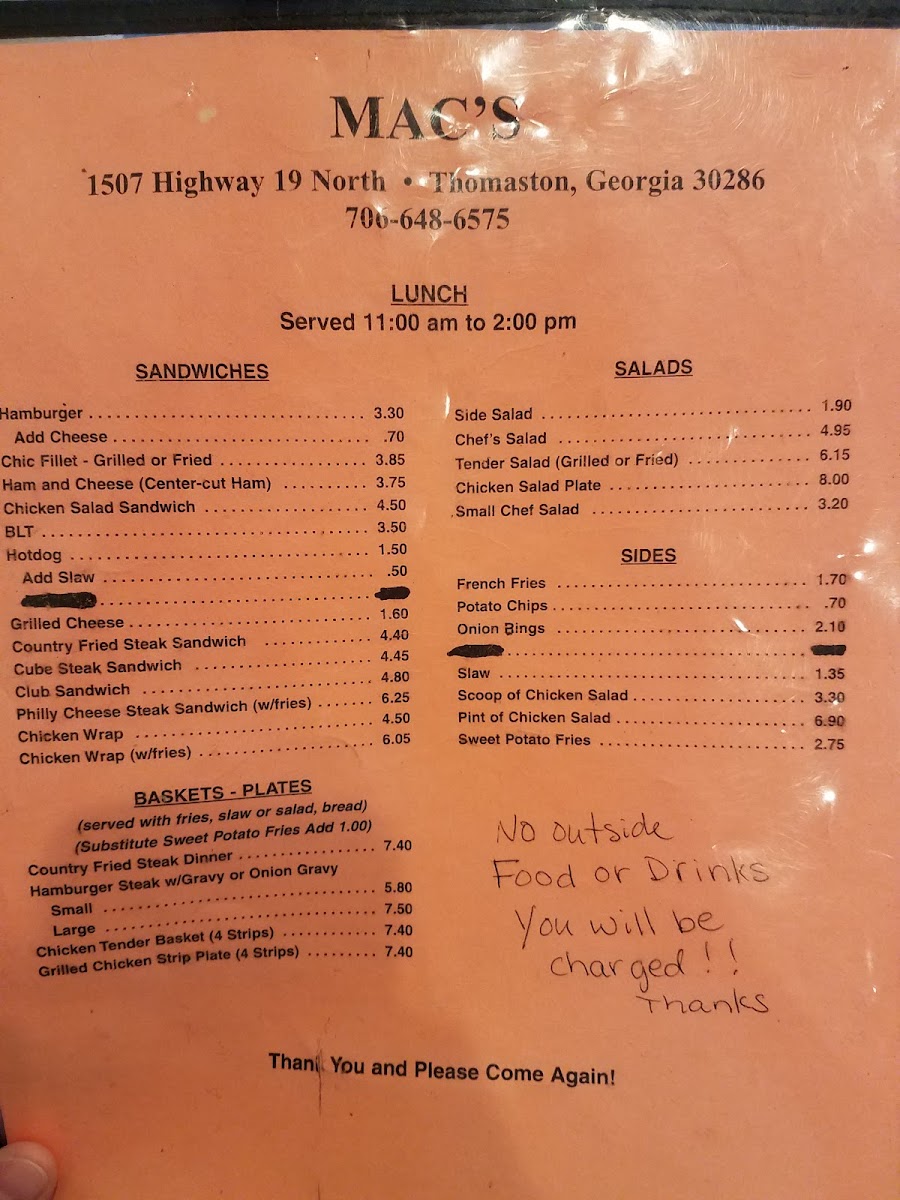 MAC'S
1507 Highway 19 North • Thomaston, Georgia 30286
706-648-6575
LUNCH
Served 11:00 am to 2:00 pm
SANDWICHES
Hamburger 3.30
Add Cheese .70
Chic Fillet - Grilled or Fried 3.85
Ham and Cheese (Center-cut Ham) 3.75
Chicken Salad Sandwich 4.50
BLT 3.50
Hotdog 1.50
Add Slaw .50
Grilled Cheese 1.60
Country Fried Steak Sandwich 4.40
Cube Steak Sandwich 4.45
Club Sandwich 4.80
Philly Cheese Steak Sandwich (w/fries) 6.25
Chicken Wrap 4.50
Chicken Wrap (w/fries) 6.05
BASKETS - PLATES
(served with fries, slaw or salad, bread)
(Substitute Sweet Potato Fries Add 1.00)
Country Fried Steak Dinner 7.40
Hamburger Steak w/Gravy or Onion Gravy
Small 5.80
Large 7.50
Chicken Tender Basket (4 Strips) 7.40
Grilled Chicken Strip Plate (4 Strips) 7.40
SALADS
Side Salad 1.90
Chef's Salad 4.95
Tender Salad (Grilled or Fried) 6.15
Chicken Salad Plate 8.00
Small Chef Salad 3.20
SIDES
French Fries 1.70
Potato Chips .70
Onion Rings 2.10
Slaw 1.35
Scoop of Chicken Salad 3.30
Pint of Chicken Salad 6.90
Sweet Potato Fries 2.75
No outside
Food or Drinks
You will be
charged!!
Thanks
Thank You and Please Come Again!